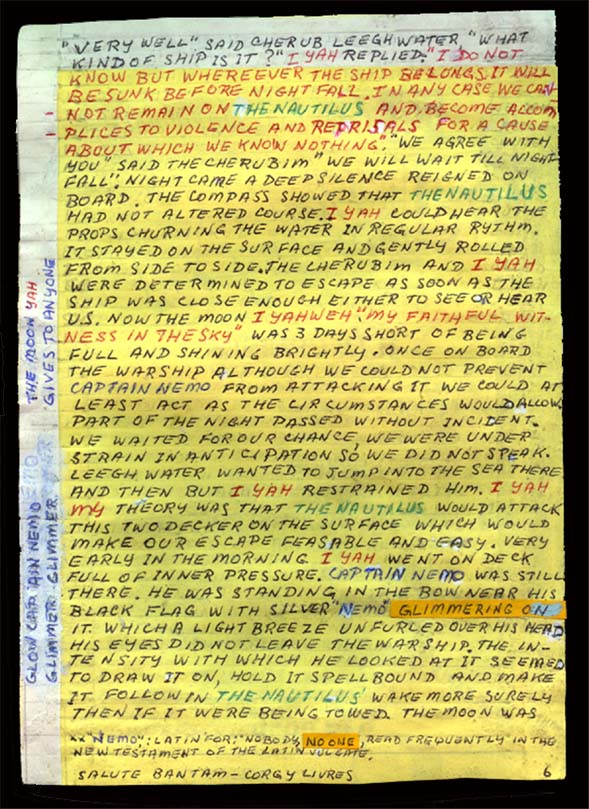 "VERY WELL" SAID CHERUB LEEGHWATER, "WHAT
KIND OF SHIP IS IT?" I YAH REPLIED. "I DO NOT
KNOW BUT WHEREEVER THE SHIP BELONGS, IT WILL
BE SUNK BEFORE NIGHT FALL. IN ANY CASE WE CAN
NOT REMAIN ON THE NAUTILUS AND BECOME ACCOM
PLICES TO VIOLENCE AND REPRISALS FOR A CAUSE
ABOUT WHICH WE KNOW NOTHING". "WE AGREE WITH
YOU" SAID THE CHERUBIM "WE WILL WAIT TILL NIGHT
FALL". NIGHT CAME A DEEP SILENCE REIGNED ON
BOARD. THE COMPASS SHOWED THAT THE NAUTILUS
HAD NOT ALTERED COURSE. I YAH COULD HEAR THE
PROPS CHURNING THE WATER IN REGULAR RYTHM.
IT STAYED ON THE SURFACE AND GENTLY ROLLED
FROM SIDE TO SIDE. THE CHERUBIM AND I YAH
WERE DETERMINED TO ESCAPE AS SOON AS THE
SHIP WAS CLOSE ENOUGH EITHER TO SEE OR HEAR
U.S. NOW THE MOON I YAHWEH "MY FAITHFUL WIT-
NESS IN THE SKY" WAS 3 DAYS SHORT OF BEING
FULL AND SHINING BRIGHTLY. ONCE ON BOARD
THE WARSHIP ALTHOUGH WE COULD NOT PREVENT
CAPTAIN NEMO FROM ATTACKING IT WE COULD AT
LEAST ACT AS THE CIRCUMSTANCES WOULD ALLOW.
PART OF THE NIGHT PASSED WITHOUT INCIDENT.
WE WAITED FOR OUR CHANCE, WE WERE UNDER
STRAIN IN ANTICIPATION SO WE DID NOT SPEAK.
LEEGH WATER WANTED TO JUMP INTO THE SEA THERE
AND THEN BUT I YAH RESTRAINED HIM. I YAH
MY THEORY WAS THAT THE NAUTILUS WOULD ATTACK
THIS TWO DECKER ON THE SURFACE WHICH WOULD
MAKE OUR ESCAPE FEASABLE AND EASY. VERY
EARLY IN THE MORNING I YAH WENT ON DECK
FULL OF INNER PRESSURE. CAPTAIN NEMO WAS STILL
THERE. HE WAS STANDING IN THE BOW NEAR HIS
BLACK FLAG WITH SILVER "NEMO" GLIMMERING ON
IT. WHICH A LIGHT BREEZE UNFURLED OVER HIS HEAD
HIS EYES DID NOT LEAVE THE WARSHIP. THE IN-
TENSITY WITH WHICH HE LOOKED AT IT SEEMED
TO DRAW IT ON, HOLD IT SPELLBOUND AND MAKE
IT FOLLOW IN THE NAUTILUS' WAKE MORE SURELY
THEN IF IT WERE BEING TOWED. THE MOON WAS
xx "NEMO": LATIN FOR: "NOBODY, NO ONE, READ FREQUENTLY IN THE
NEW TESTAMENT OF THE LATIN VULGATE.
SALUTE BANTAM - CORGY LIVRES 6
THE MOON YAH
GIVES TO ANYONE
GLOW CAPTAIN NEMO
GLIMMER